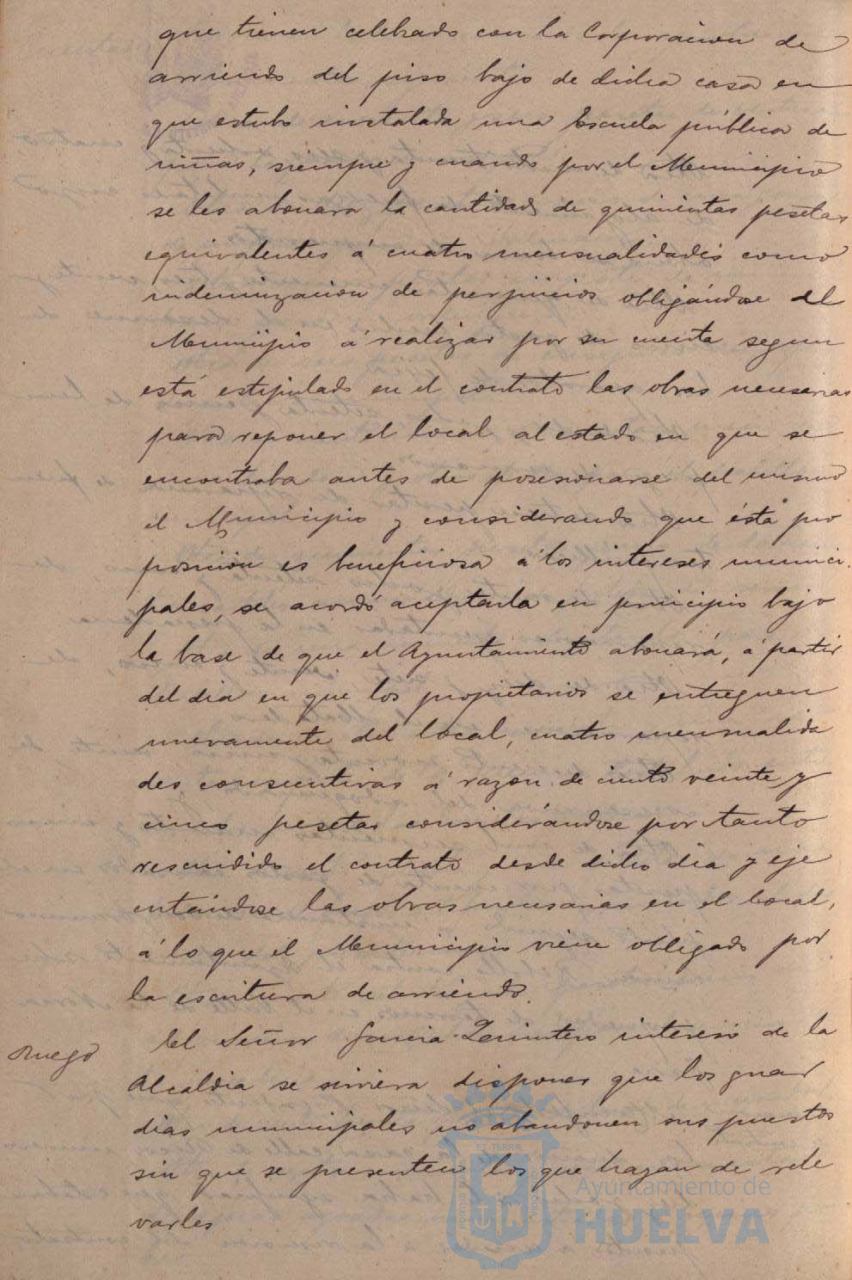 que tienen celebrado con la Corporacion de
arriendo del piso bajo de dicha casa en
que estubo instalada una Escuela pública de
niñas, siempre y cuando por el Municipio
se les abonara la cantidad de quinientas pesetas
equivalentes á cuatro mensualidades como
indemnizacion de perjuicios obligándose el
Municipio á realizar por su cuenta segun
está estipulado en el contrato las obras necesarias
para reponer el local al estado en que se
encontraba antes de posesionarse del mismo
el Municipio y considerando que ésta pro
posición es beneficiosa á los intereses munici-
pales, se acordó aceptarla en principio bajo
la base de que el Ayuntamiento abonará, á partir
del dia en que los propietarios se entreguen
nuevamente del local, cuatro mensualida
des consecutivas á razon de ciento veinte y
cinco pesetas considerándose por tanto
rescindido el contrato desde dicho dia y eje
cutándose las obras necesarias en el local,
á lo que el Municipio viene obligado por
la escritura de arriendo.
Ruego El Señor Garcia Quintero interesó de la
Alcaldia se sirviera disponer que los guar
dias municipales no abandonen sus puestos
sin que se presenten los que hazan de rele
varles
Ayuntamiento de
HUELVA